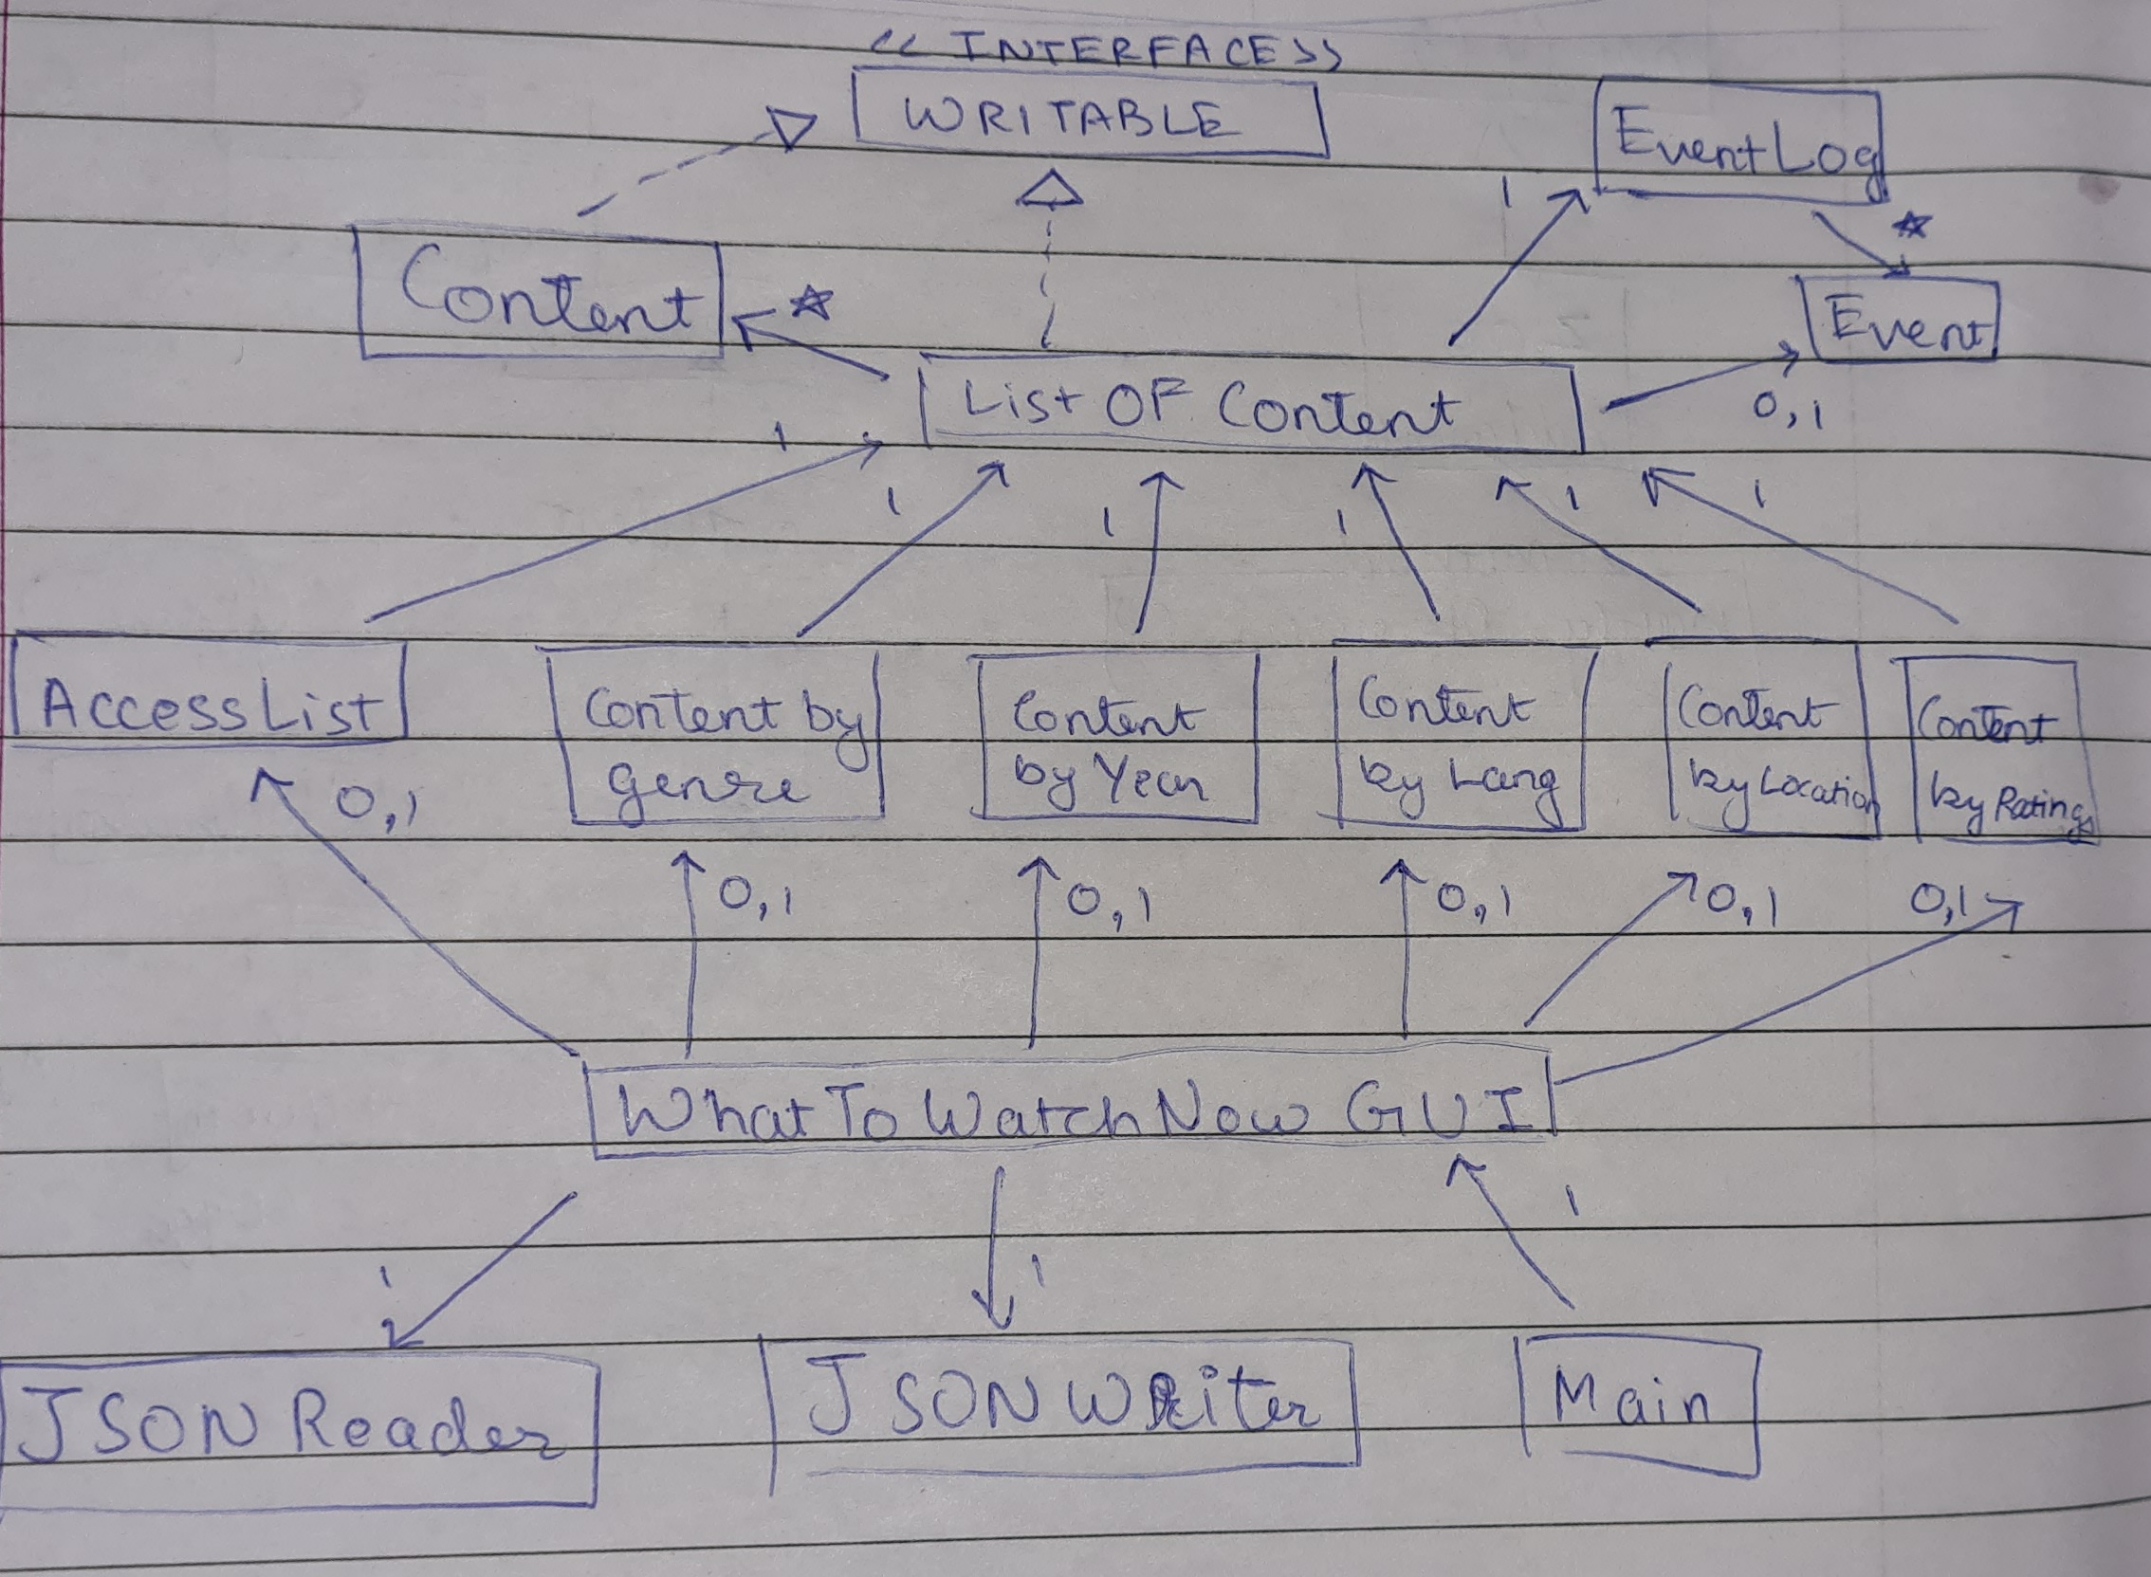 << INTERFACE>>
WRITABLE
EventLog
1
*
Content
*
Event
List OF Content
0,1
1
1
1
1
1
1
AccessList
Content by
genre
Content
by Year
Content
by Lang
Content
by Location
Content
by Ratings
0,1
0,1
0,1
0,1
0,1
0,1
WhatToWatchNow GUI
1
1
1
JSON Reader
JSON Writer
Main